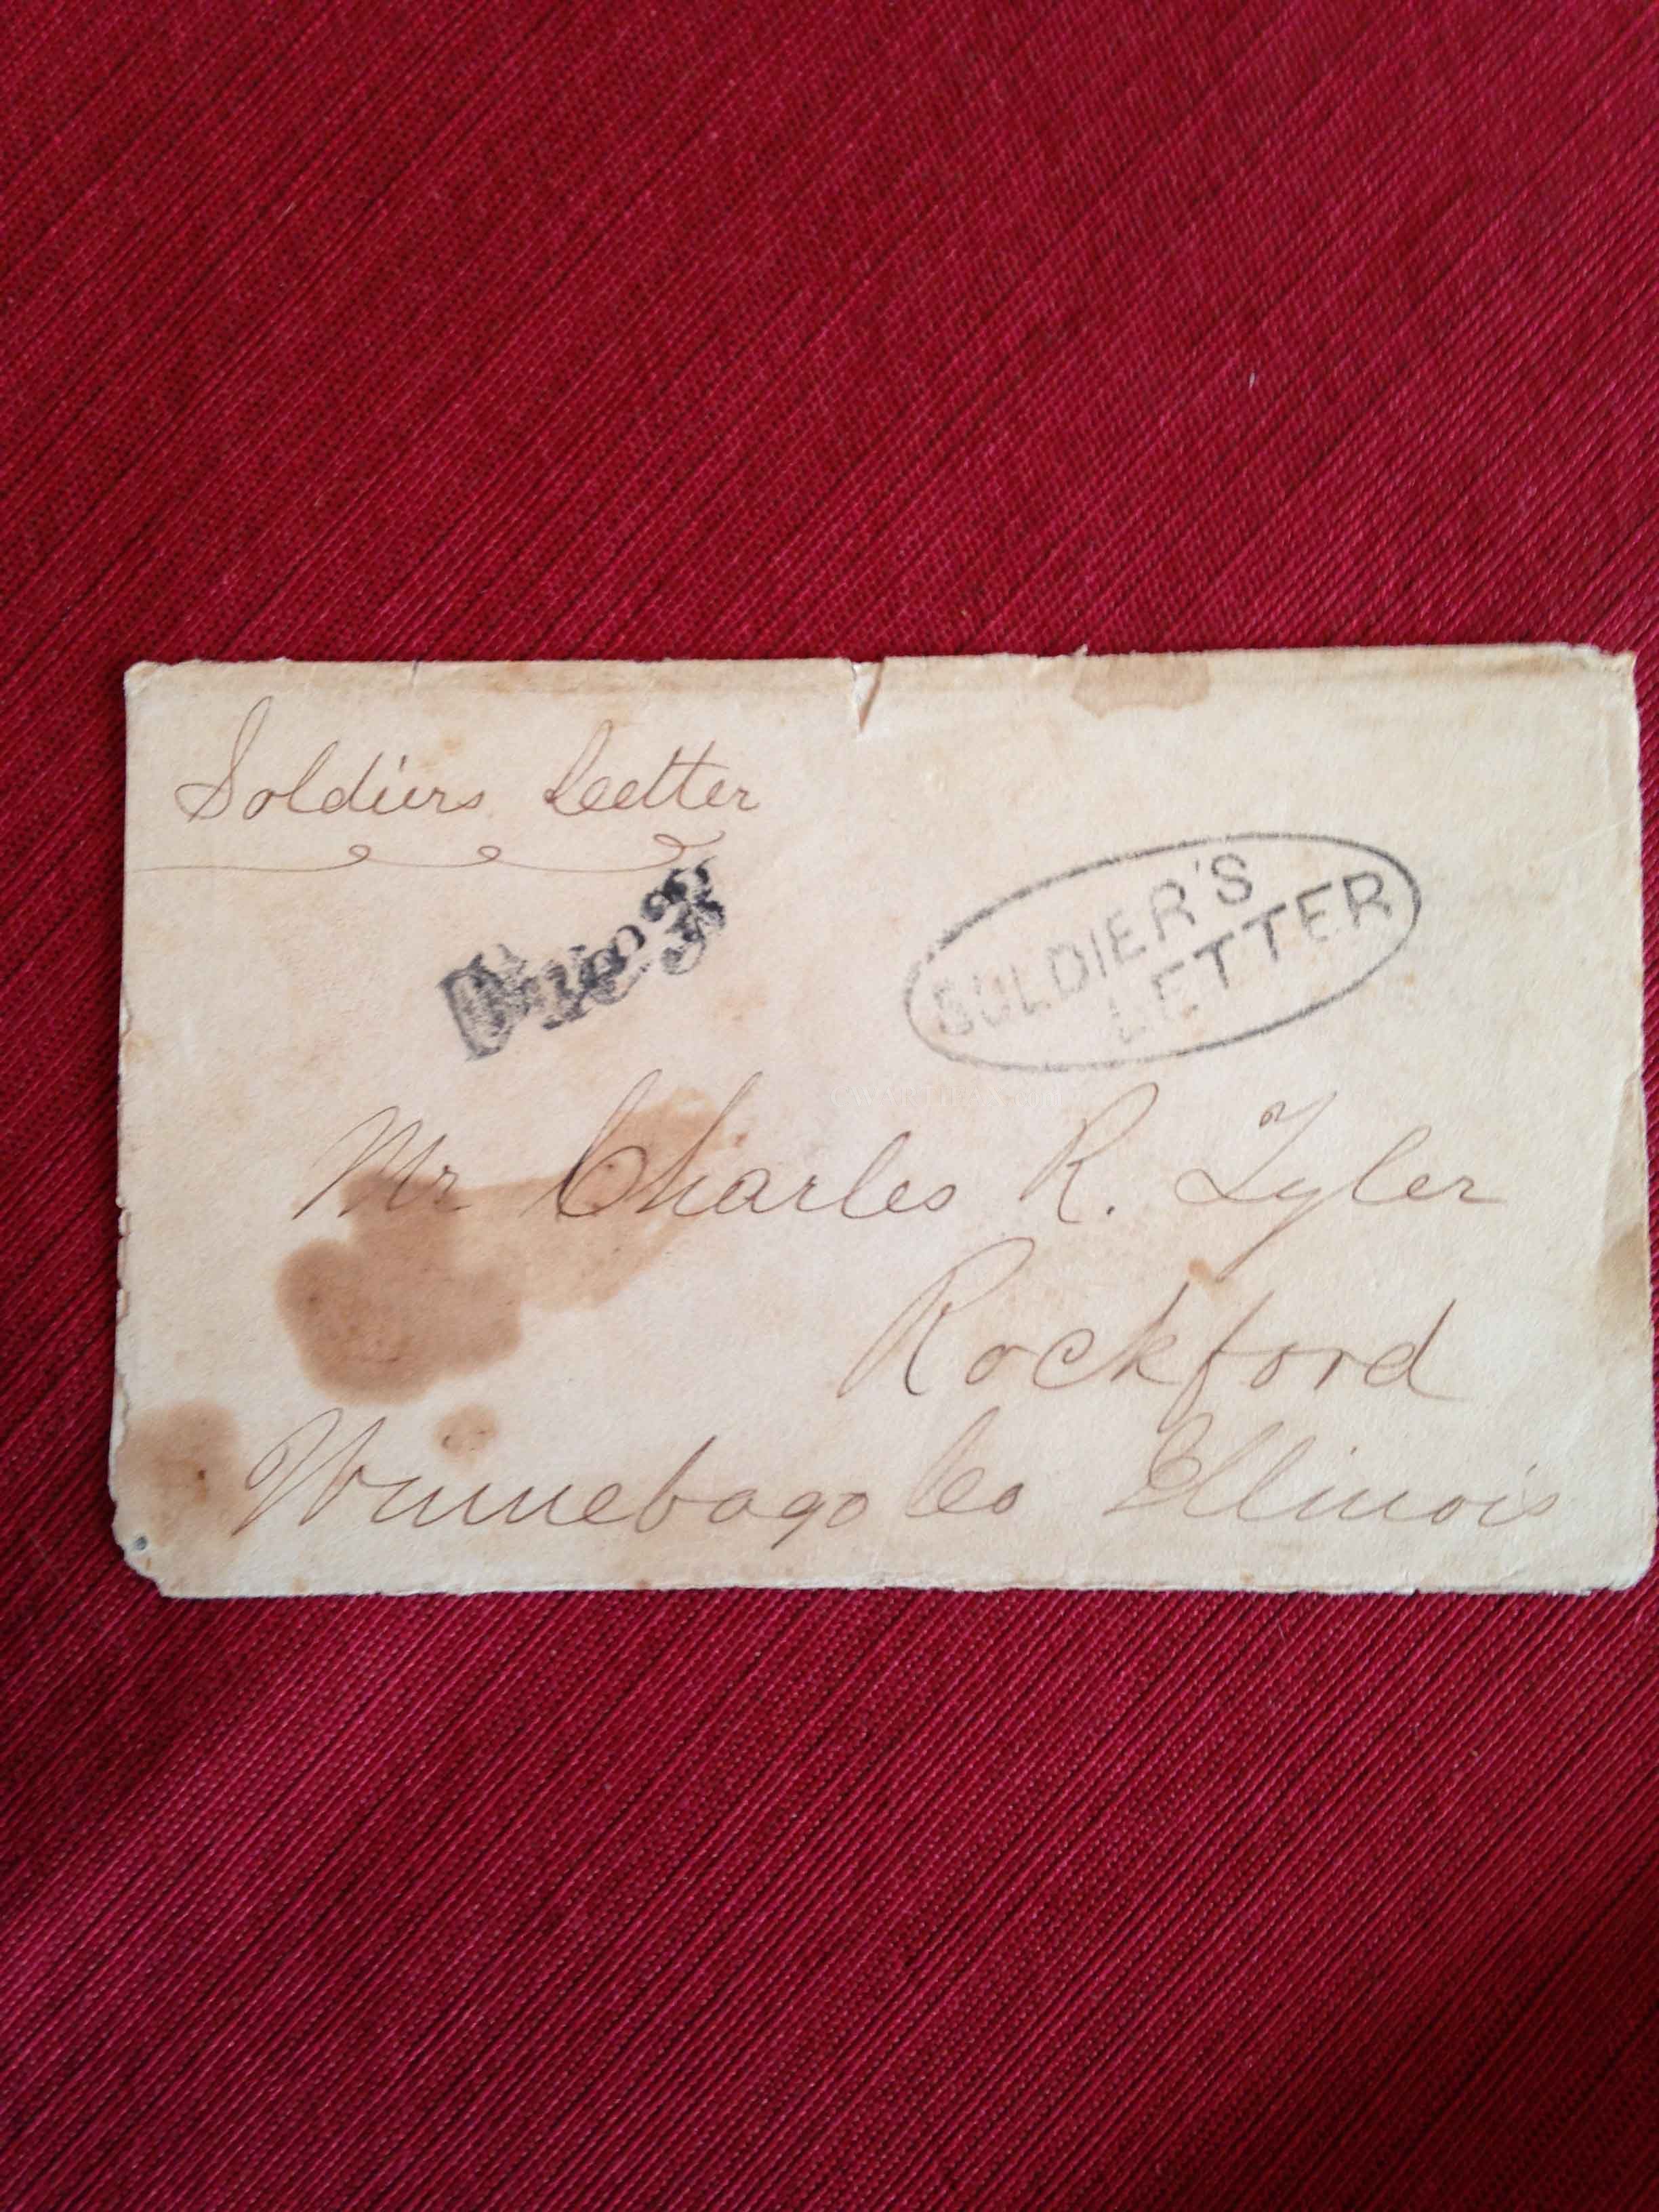 Soldiers Letter
Due 3
SOLDIER'S
LETTER
Mr Charles R. Tyler
Rockford
Winnebago Co Illinois